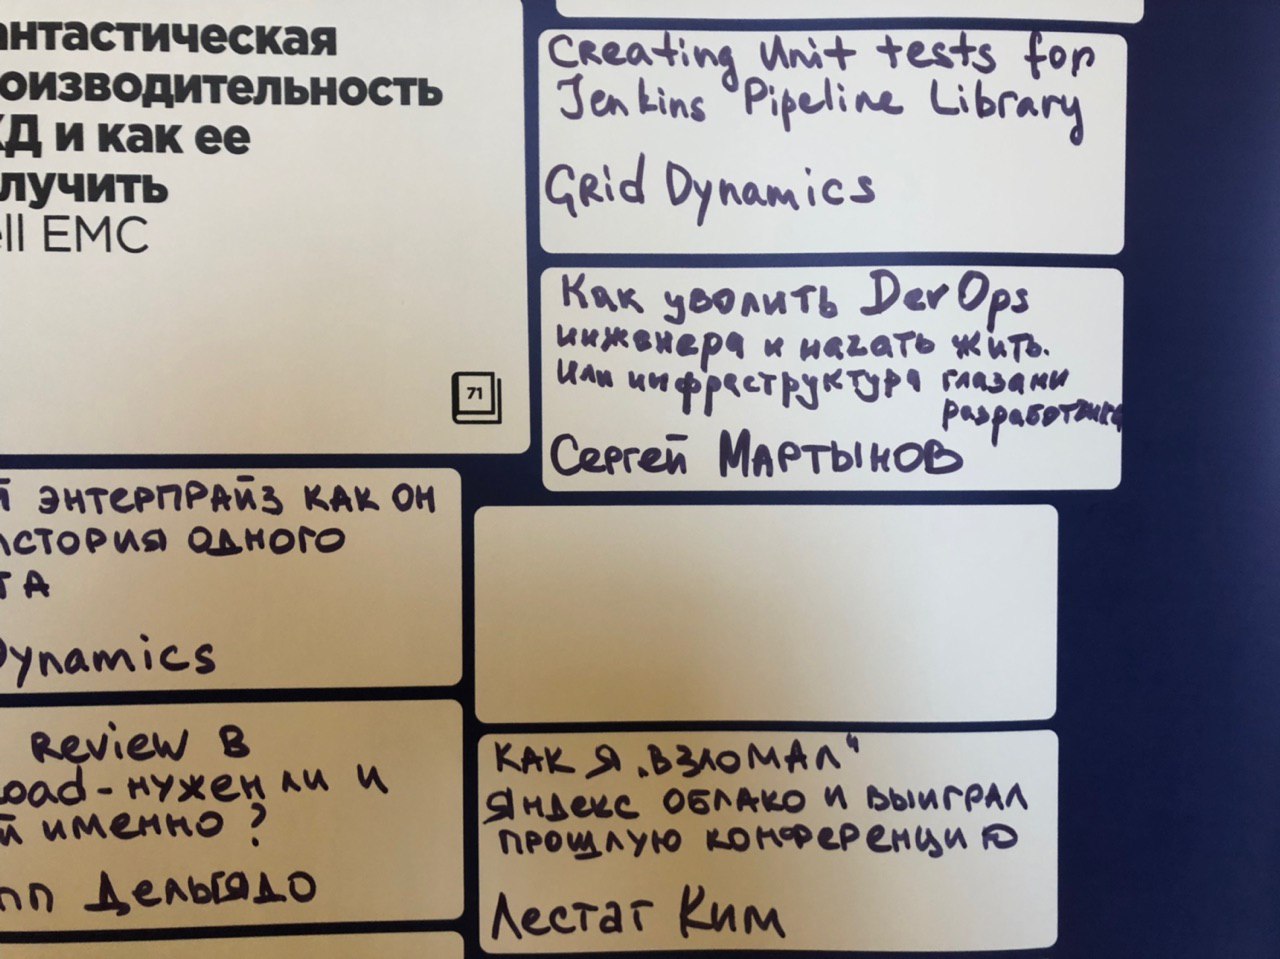 антастическая
оизводительность
КД и как ее
лучить
ell EMC
71
Creating Unit tests for
Jenkins Pipeline Library
Grid Dynamics
Как уволить DevOps
инженера и начать жить.
Или инфраструктура глазами
разработчика
Сергей Мартынов
й ЭНТЕРПРАЙЗ КАК ОН
ИСТОРИЯ ОДНОГО
ТА
Dynamics
Review В
Load - нужен ли и
й именно?
пп Дельгядо
КАК Я „ВЗЛОМАЛ“
ЯНДЕКС ОБЛАКО И ВЫИГРАЛ
ПРОШЛУЮ КОНФЕРЕНЦИЮ
Лестат Ким